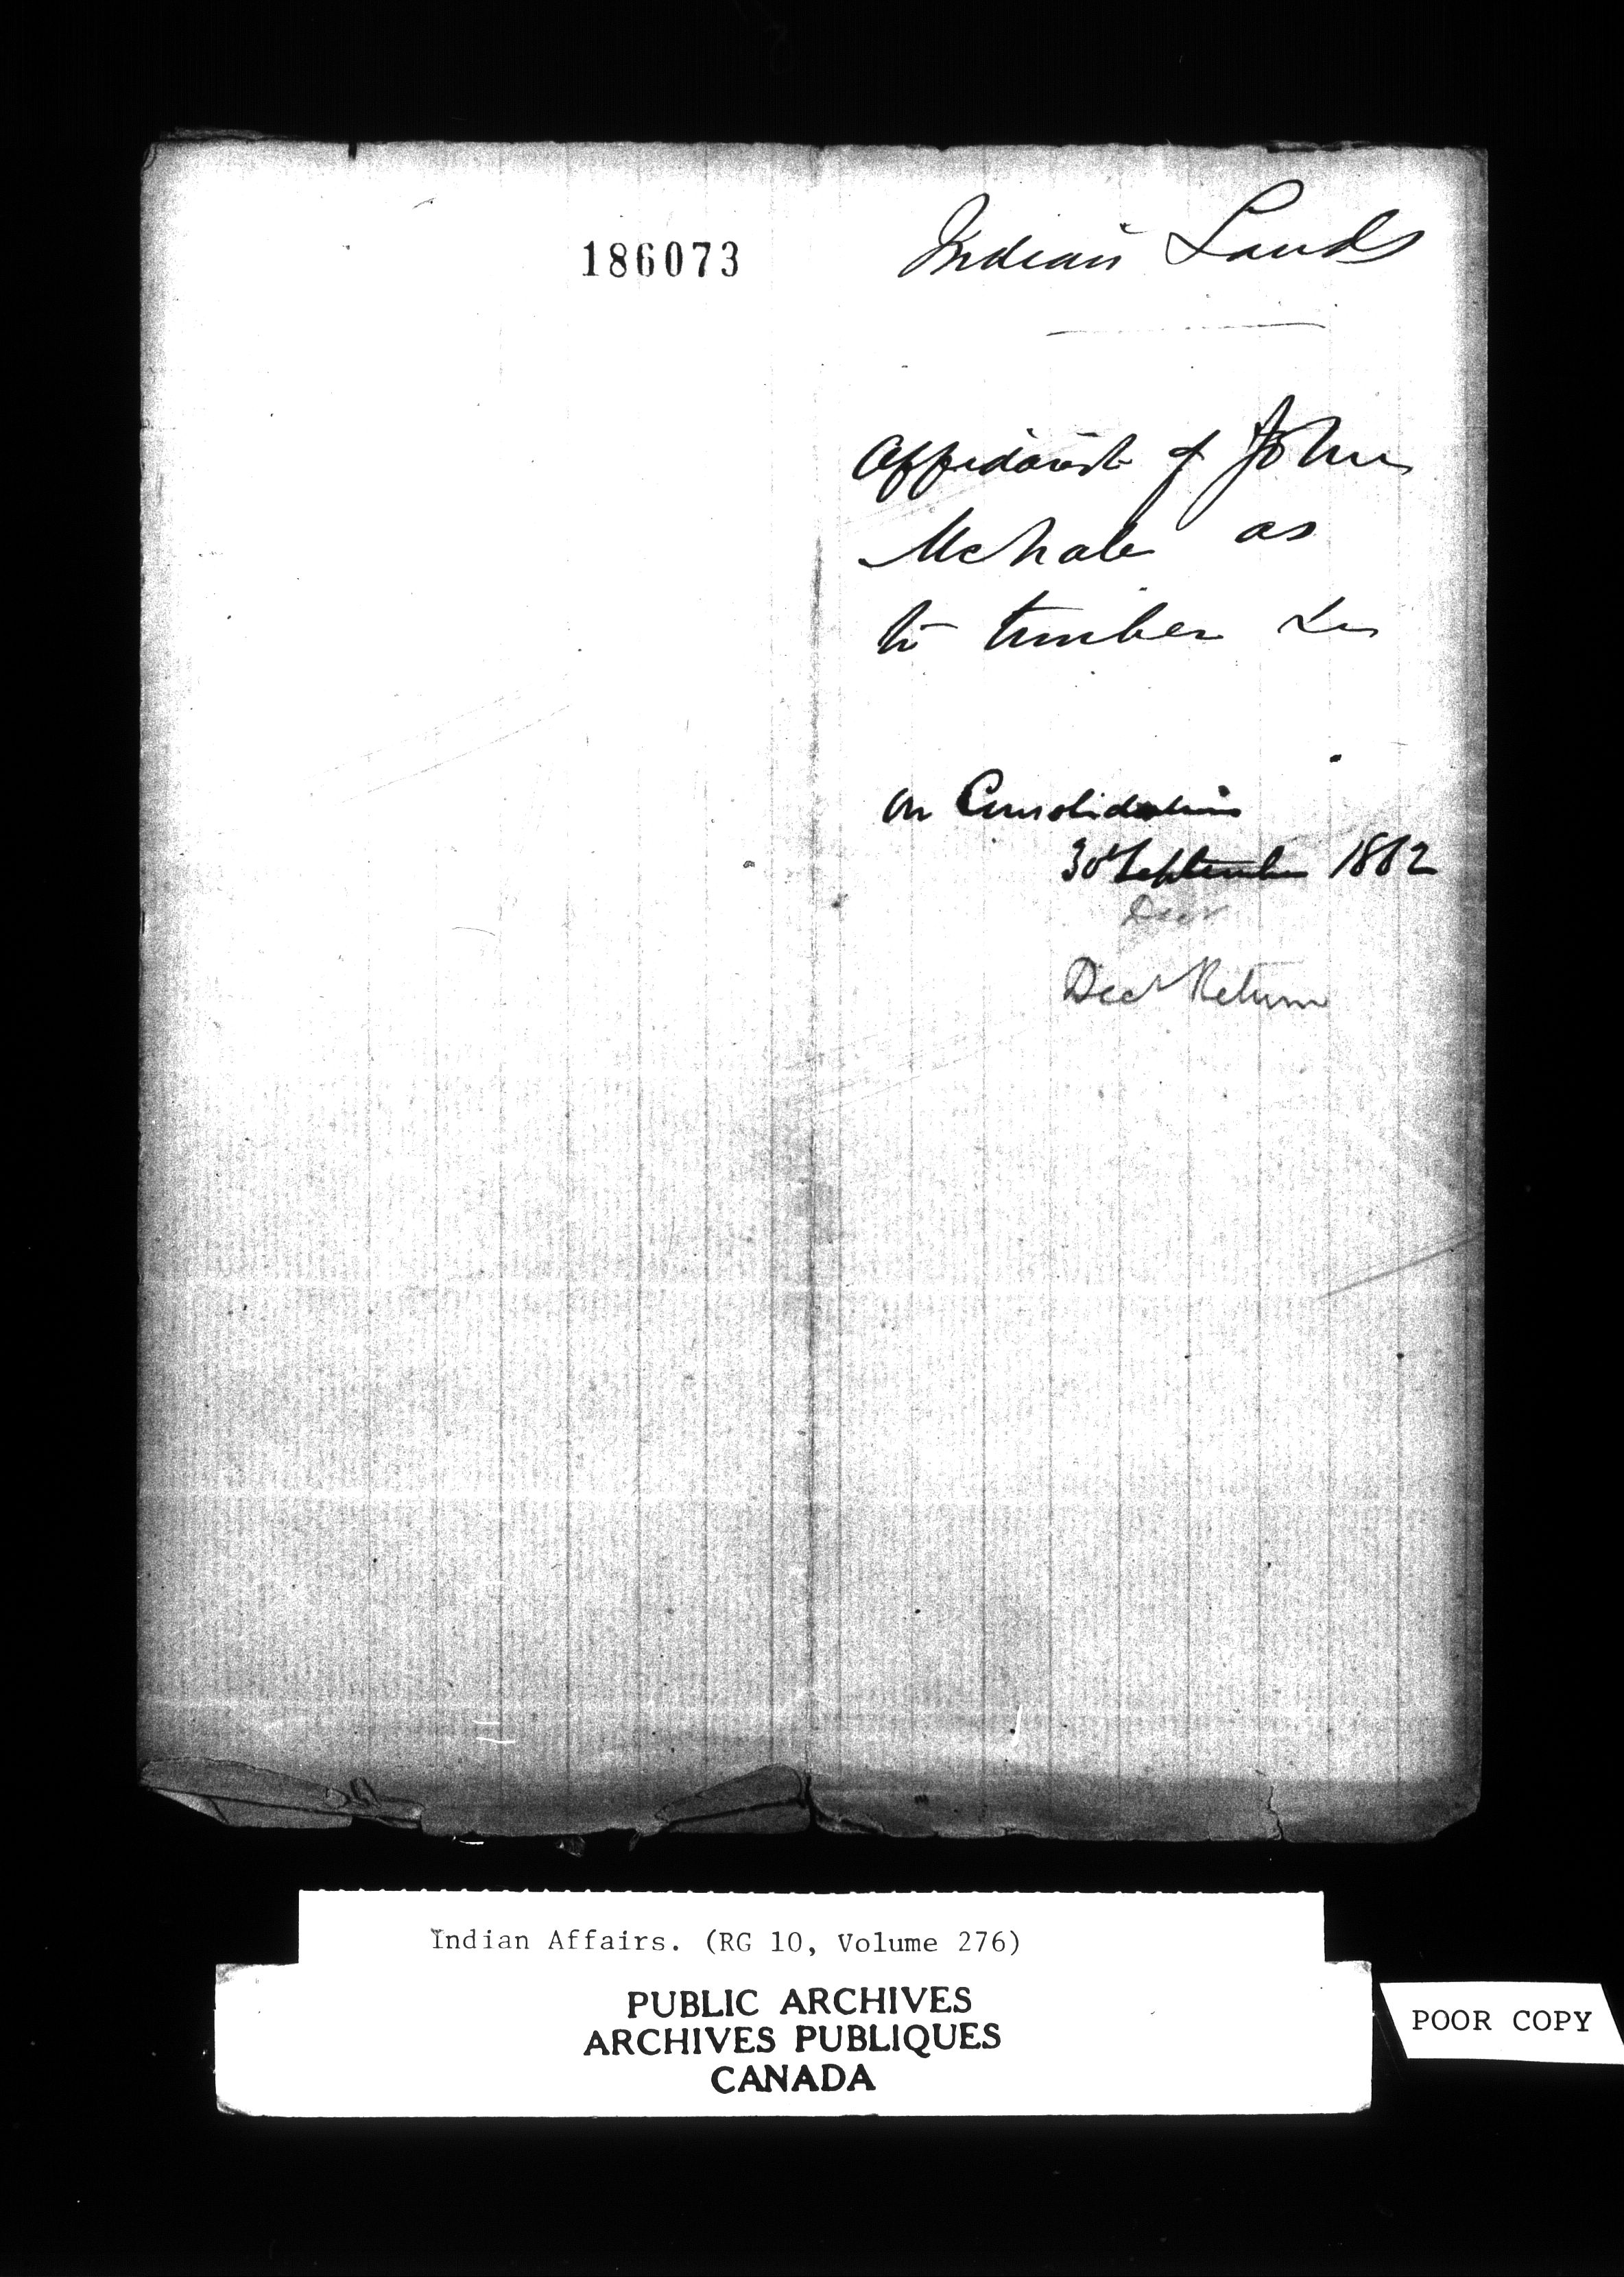 186073
Indian Lands
Affidavit of John
McNab as
to timber &c
on Consolidation
30 September 1862
Decr
Decr Return
Indian Affairs. (RG 10, Volume 276)
PUBLIC ARCHIVES
ARCHIVES PUBLIQUES
CANADA
POOR COPY